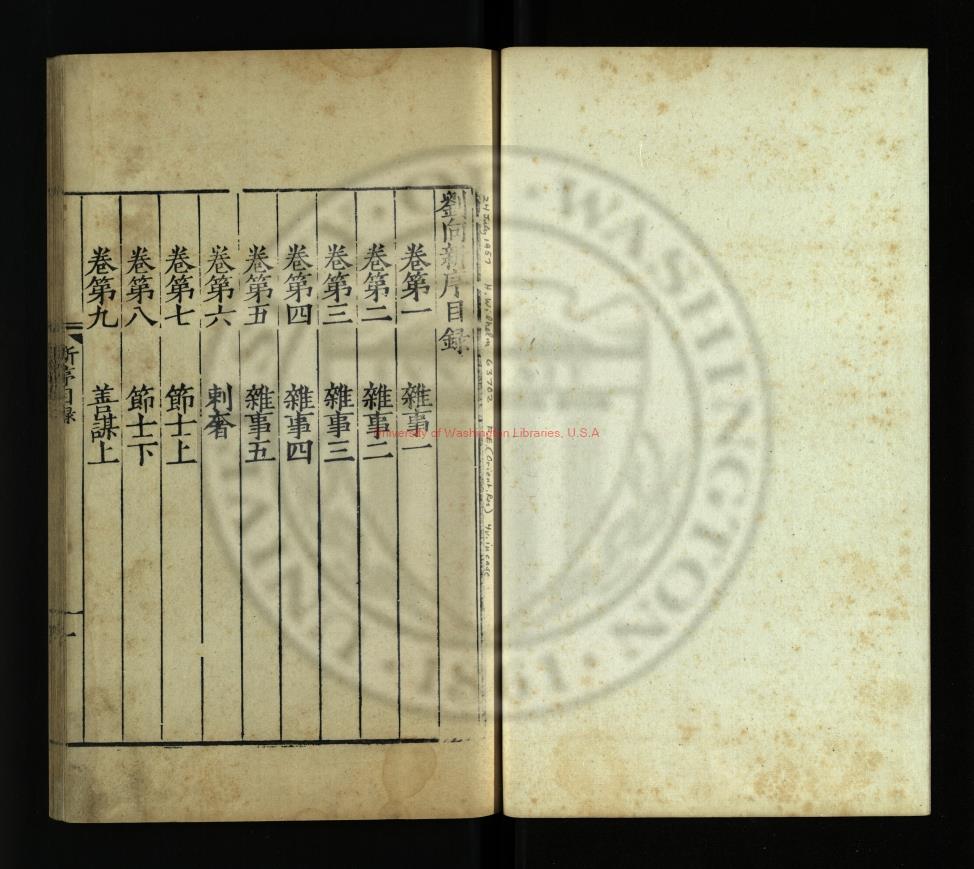 劉向新序目録
卷第一 雜事一
卷第二 雜事二
卷第三 雜事三
卷第四 雜事四
卷第五 雜事五
卷第六 刺奢
卷第七 節士上
卷第八 節士下
卷第九 善謀上
新序目録
一
24 July 1957 H. Wilhelm 63702 F.E. (Orient. Res) 4v. in case
University of Washington Libraries, U.S.A
UNIVERSITY · OF · WASHINGTON · 1861 ·